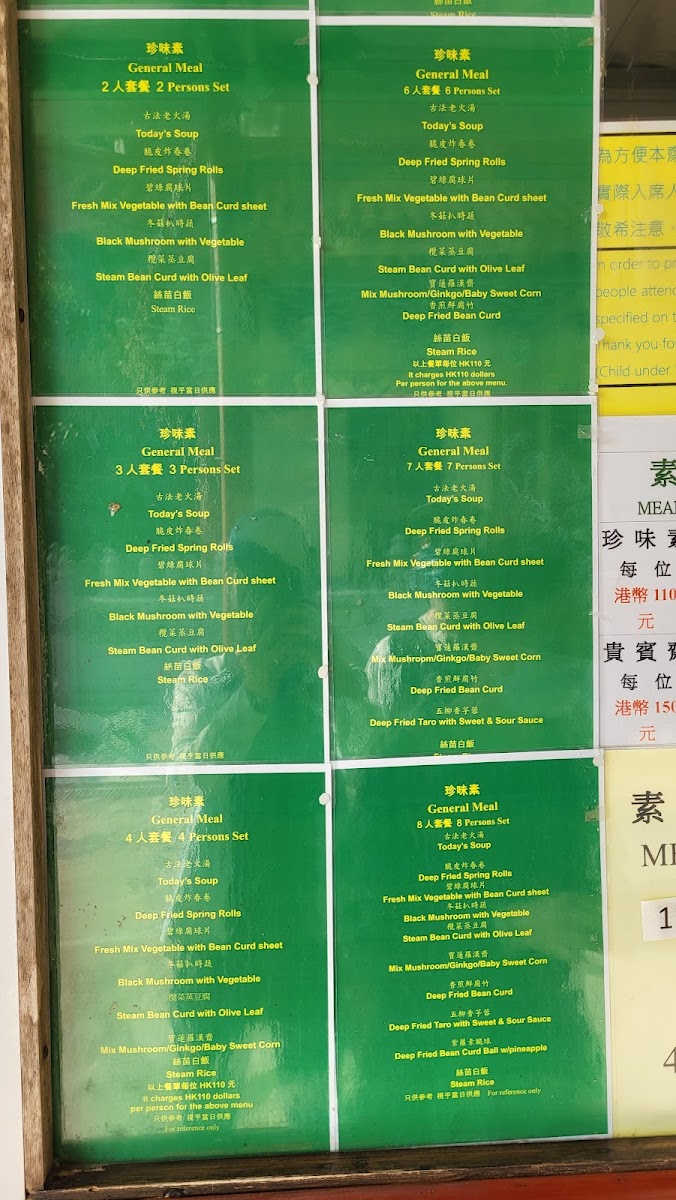 絲苗白飯
Steam Rice
珍味素
General Meal
2 人套餐 2 Persons Set
古法老火湯
Today's Soup
脆皮炸春卷
Deep Fried Spring Rolls
碧綠腐球片
Fresh Mix Vegetable with Bean Curd sheet
冬菇扒時蔬
Black Mushroom with Vegetable
欖菜蒸豆腐
Steam Bean Curd with Olive Leaf
絲苗白飯
Steam Rice
只供參考 視乎當日供應
珍味素
General Meal
6 人套餐 6 Persons Set
古法老火湯
Today's Soup
脆皮炸春卷
Deep Fried Spring Rolls
碧綠腐球片
Fresh Mix Vegetable with Bean Curd sheet
冬菇扒時蔬
Black Mushroom with Vegetable
欖菜蒸豆腐
Steam Bean Curd with Olive Leaf
寶蓮羅漢齋
Mix Mushroom/Ginkgo/Baby Sweet Corn
香煎鮮腐竹
Deep Fried Bean Curd
絲苗白飯
Steam Rice
以上餐單每位 HK110 元
It charges HK110 dollars
Per person for the above menu.
只供參考 視乎當日供應
珍味素
General Meal
3 人套餐 3 Persons Set
古法老火湯
Today's Soup
脆皮炸春卷
Deep Fried Spring Rolls
碧綠腐球片
Fresh Mix Vegetable with Bean Curd sheet
冬菇扒時蔬
Black Mushroom with Vegetable
欖菜蒸豆腐
Steam Bean Curd with Olive Leaf
絲苗白飯
Steam Rice
只供參考 視乎當日供應
珍味素
General Meal
7 人套餐 7 Persons Set
古法老火湯
Today's Soup
脆皮炸春卷
Deep Fried Spring Rolls
碧綠腐球片
Fresh Mix Vegetable with Bean Curd sheet
冬菇扒時蔬
Black Mushroom with Vegetable
欖菜蒸豆腐
Steam Bean Curd with Olive Leaf
寶蓮羅漢齋
Mix Mushropm/Ginkgo/Baby Sweet Corn
香煎鮮腐竹
Deep Fried Bean Curd
五柳香芋蓉
Deep Fried Taro with Sweet & Sour Sauce
絲苗白飯
珍味素
General Meal
4 人套餐 4 Persons Set
古法老火湯
Today's Soup
脆皮炸春卷
Deep Fried Spring Rolls
碧綠腐球片
Fresh Mix Vegetable with Bean Curd sheet
冬菇扒時蔬
Black Mushroom with Vegetable
欖菜蒸豆腐
Steam Bean Curd with Olive Leaf
寶蓮羅漢齋
Mix Mushroom/Ginkgo/Baby Sweet Corn
絲苗白飯
Steam Rice
以上餐單每位 HK110 元
It charges HK110 dollars
per person for the above menu
只供參考 視乎當日供應
For reference only
珍味素
General Meal
8 人套餐 8 Persons Set
古法老火湯
Today's Soup
脆皮炸春卷
Deep Fried Spring Rolls
碧綠腐球片
Fresh Mix Vegetable with Bean Curd sheet
冬菇扒時蔬
Black Mushroom with Vegetable
欖菜蒸豆腐
Steam Bean Curd with Olive Leaf
寶蓮羅漢齋
Mix Mushroom/Ginkgo/Baby Sweet Corn
香煎鮮腐竹
Deep Fried Bean Curd
五柳香芋蓉
Deep Fried Taro with Sweet & Sour Sauce
紫蘿素脆球
Deep Fried Bean Curd Ball w/pineapple
絲苗白飯
Steam Rice
只供參考 視乎當日供應 For reference only
為方便本齋
實際入席人
敬希注意。
in order to pr
people attend
specified on t
Thank you-for
(Child under
素
MEA
珍味素
每 位
港幣 110
元
貴賓齋
每 位
港幣 150
元
素
ME
1
4